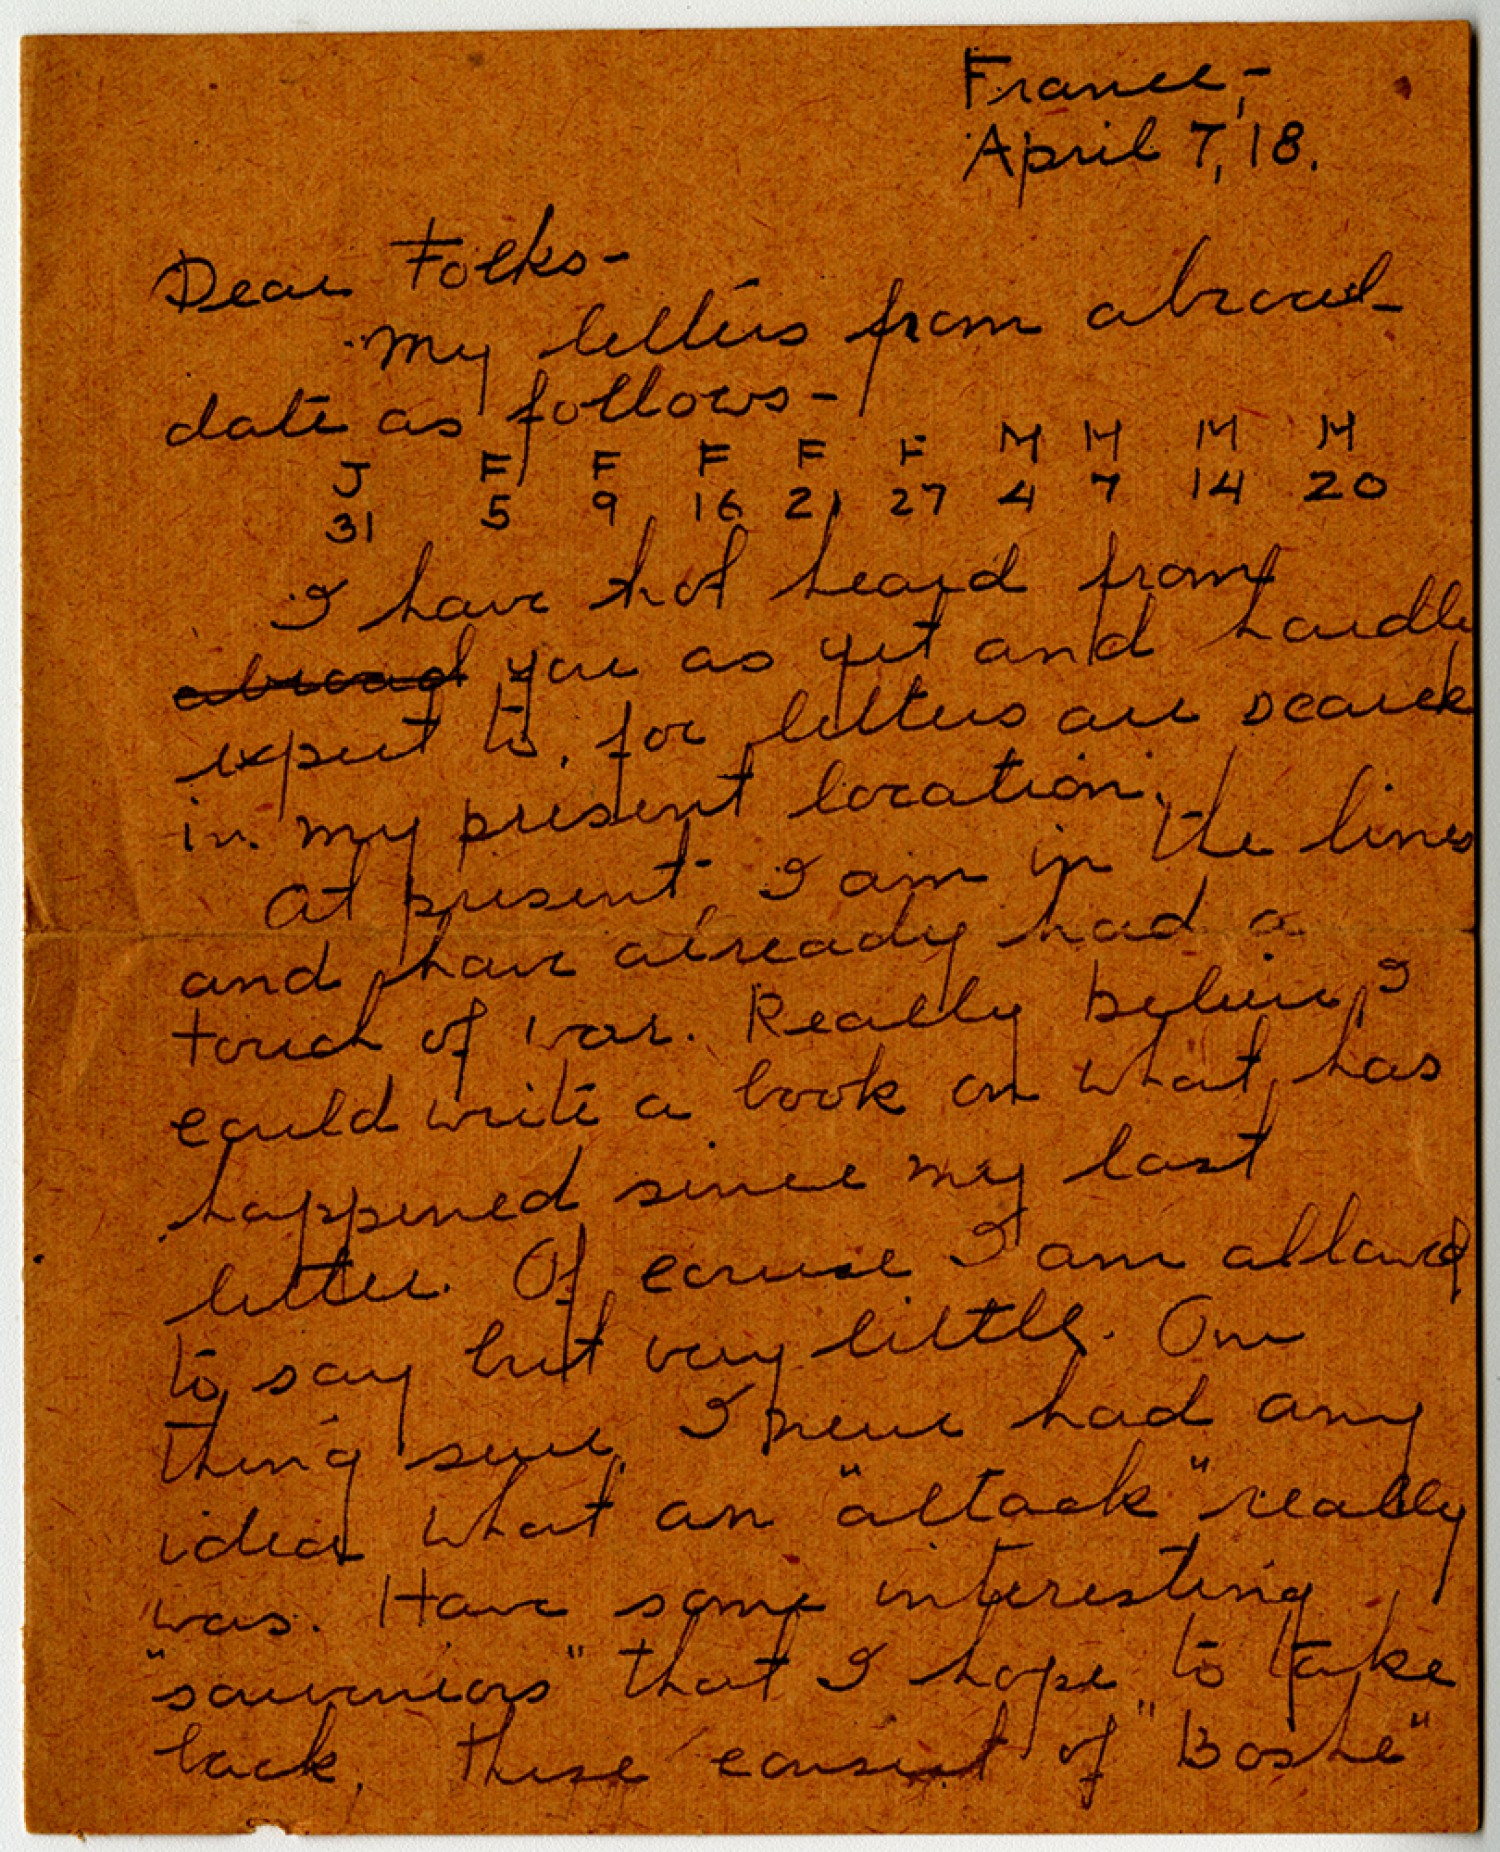 France,-
April 7, 18.
Dear Folks-
My letters from abroad
date as follows-
J F F F F F M M M M
31 5 9 16 21 27 4 7 14 20
I have not heard from
abroad you as yet and hardly
expect to, for letters are scarce
in my present location.
At present I am in the lines
and have already had a
touch of war. Really believe I
could write a book on what has
happened since my last
letter. Of course I am allowed
to say but very little. One
thing sure, I never had any
idea what an "attack" really
was. Have some interesting
"souveniors" that I hope to take
back. These consist of "Boshe"